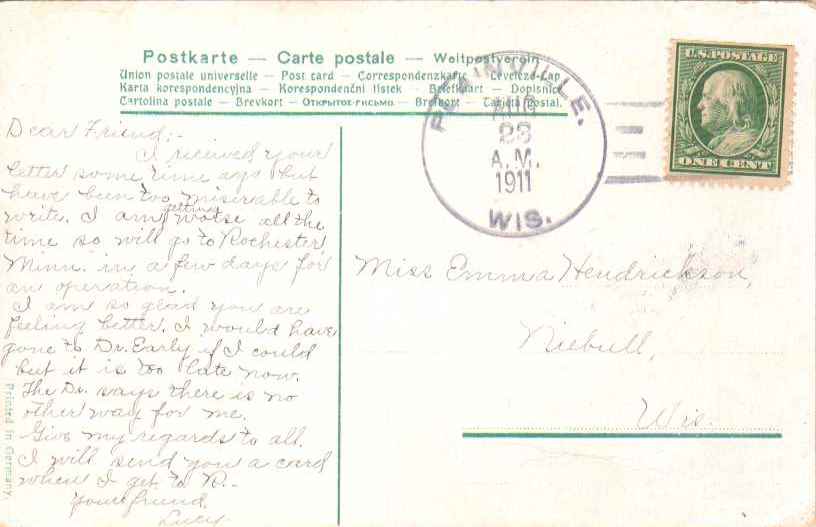 Postkarte — Carte postale — Weltpostverein
Union postale universelle — Post card — Correspondenzkarte — Levelező-Lap
Karta korespondencyjna — Korespondenční lístek — Briefkaart — Dopisnice
Cartolina postale — Brevkort — Открытое письмо — Brefkort — Tarjeta postal.
PLAINVILLE.
AUG
23
A.M.
1911
WIS.
U.S. POSTAGE
ONE CENT
Dear Friend:-
I received your
letter some time ago but
have been too miserable to
write. I am getting worse all the
time so will go to Rochester
Minn. in a few days for
an operation.
I am so glad you are
feeling better. I would have
gone to Dr. Early if I could
but it is too late now.
The Dr. says there is no
other way for me.
Give my regards to all.
I will send you a card
when I get to R.-
Your friend,
Lucy.
Miss Emma Hendrickson,
Niebull,
Wis.
Printed in Germany.